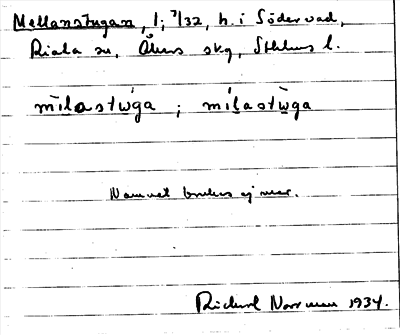 Mellanstugan, 1; 7/32, h. i Södervad,
Riala sn, Åkers skg, Sthlms l.
mìlastẁga ; mílastẁga
Namnet brukas ej mer.
Rickard Norrman 1934.